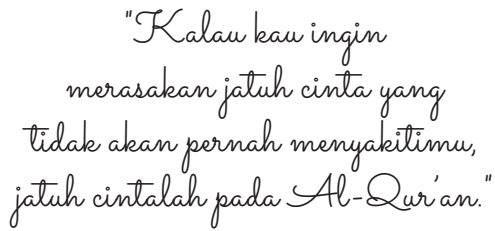 "Kalau kau ingin
merasakan jatuh cinta yang
tidak akan pernah menyakitimu,
jatuh cintalah pada Al-Qur'an."